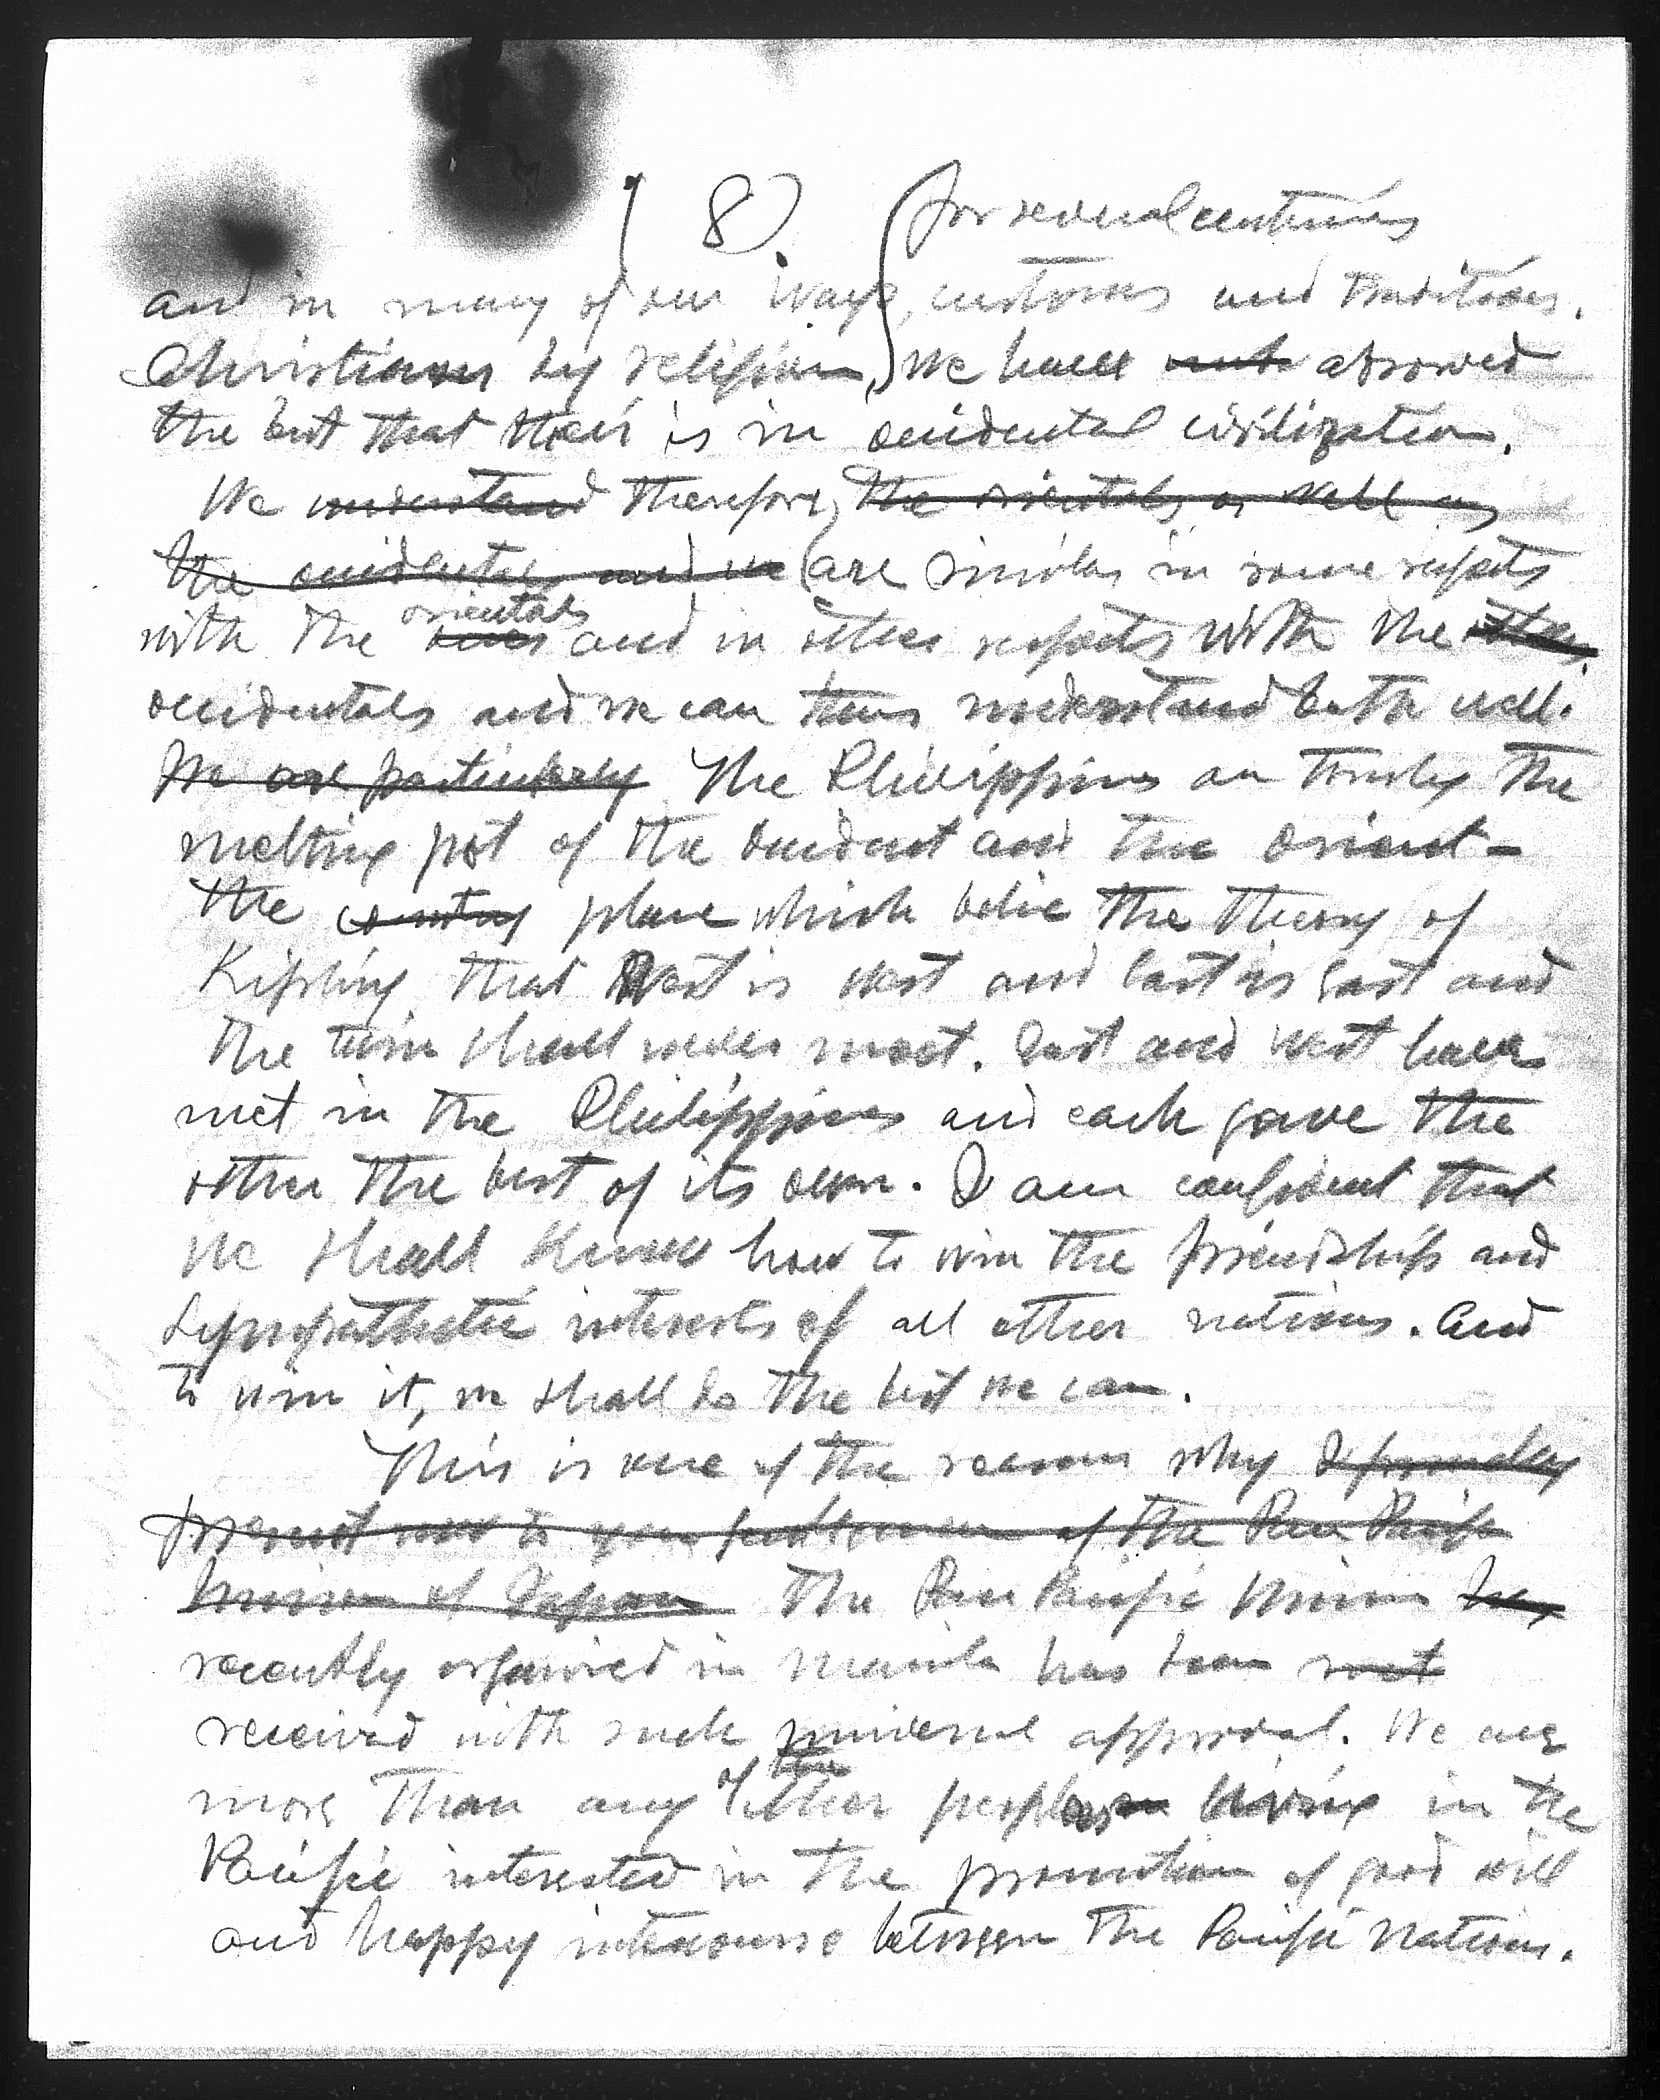 (8)
for several centuries
and in many of our ways, customs and traditions.
Christians by religion, we have absorved
the best that their is in occidental civilization.
We understand therefore, the orientals as well as
the occidentals and we are similar in some respects
with the ones orientals and in other respects with the other
occidentals and we can thus understand both well.
We are particularly The Philippines are truly the
melting pot of the Occident and the Orient -
the country place which belie the theory of
Kipling that West is West and East is East and
the twin shall never meet. East and West have
met in the Philippines and each gave the
other the best of its own. I am confident that
we shall know how to win the friendship and
sympathetic interests of all other nations. And
to win it, we shall do the best we can.
This is one of the reasons why I formally
present now to you gentlemen of the Pan Pacific
Union of Japan The Pan Pacific Union has
recently organized in Manila has been met
received with such universal approval. We are
more than any of the other peoples living in the
Pacific interested in the promotion of good will
and happy intercourse between the Pacific Nations.